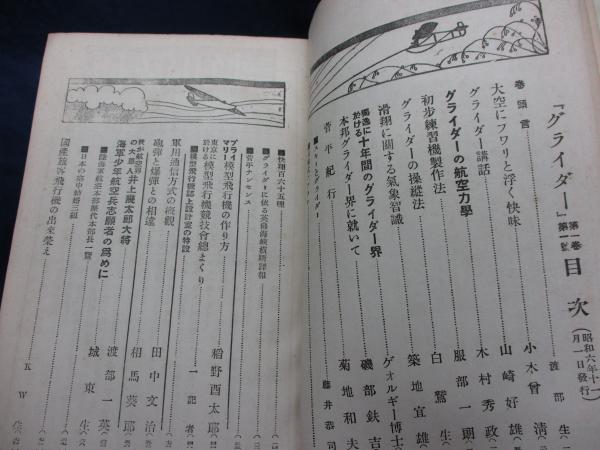 『グライダー』第一卷第一號 目次（昭和六年十一月一日發行）
卷頭言 渡部生
大空にフワリと浮く快味 小木曾清
グライダー講話 山崎好雄
グライダーの航空力學 木村秀政
初步練習機製作法 服部一朗
グライダーの操縱法 白鷲生
滑翔に關する氣象智識 築地宜雄
獨逸に於ける十年間のグライダー界 ゲオルギー博士
本邦グライダー界に就いて 磯部鈇吉
菅平紀行 菊地和夫
藤井恭司
■快翔百六十五哩
■グライダーに依る英佛海峽橫斷譚報
■菅平ナンセンス
プライマリー模型飛行機の作り方 稻野酉太郎
東京に於ける模型飛行機競技會總まくり 一記者
■模型飛行機誌上設計室の特設
軍用通信方式の概觀 田中文治
砲彈と爆彈との相違 相馬葵郎
我が航空界の大恩人井上幾太郎大將
海軍少年航空兵志願者の爲めに 渡部一英
■陸海軍航空本部歷代本部長一覽
■日本の空中結婚三組 城東生
國產旅客飛行機の出來榮え KW生